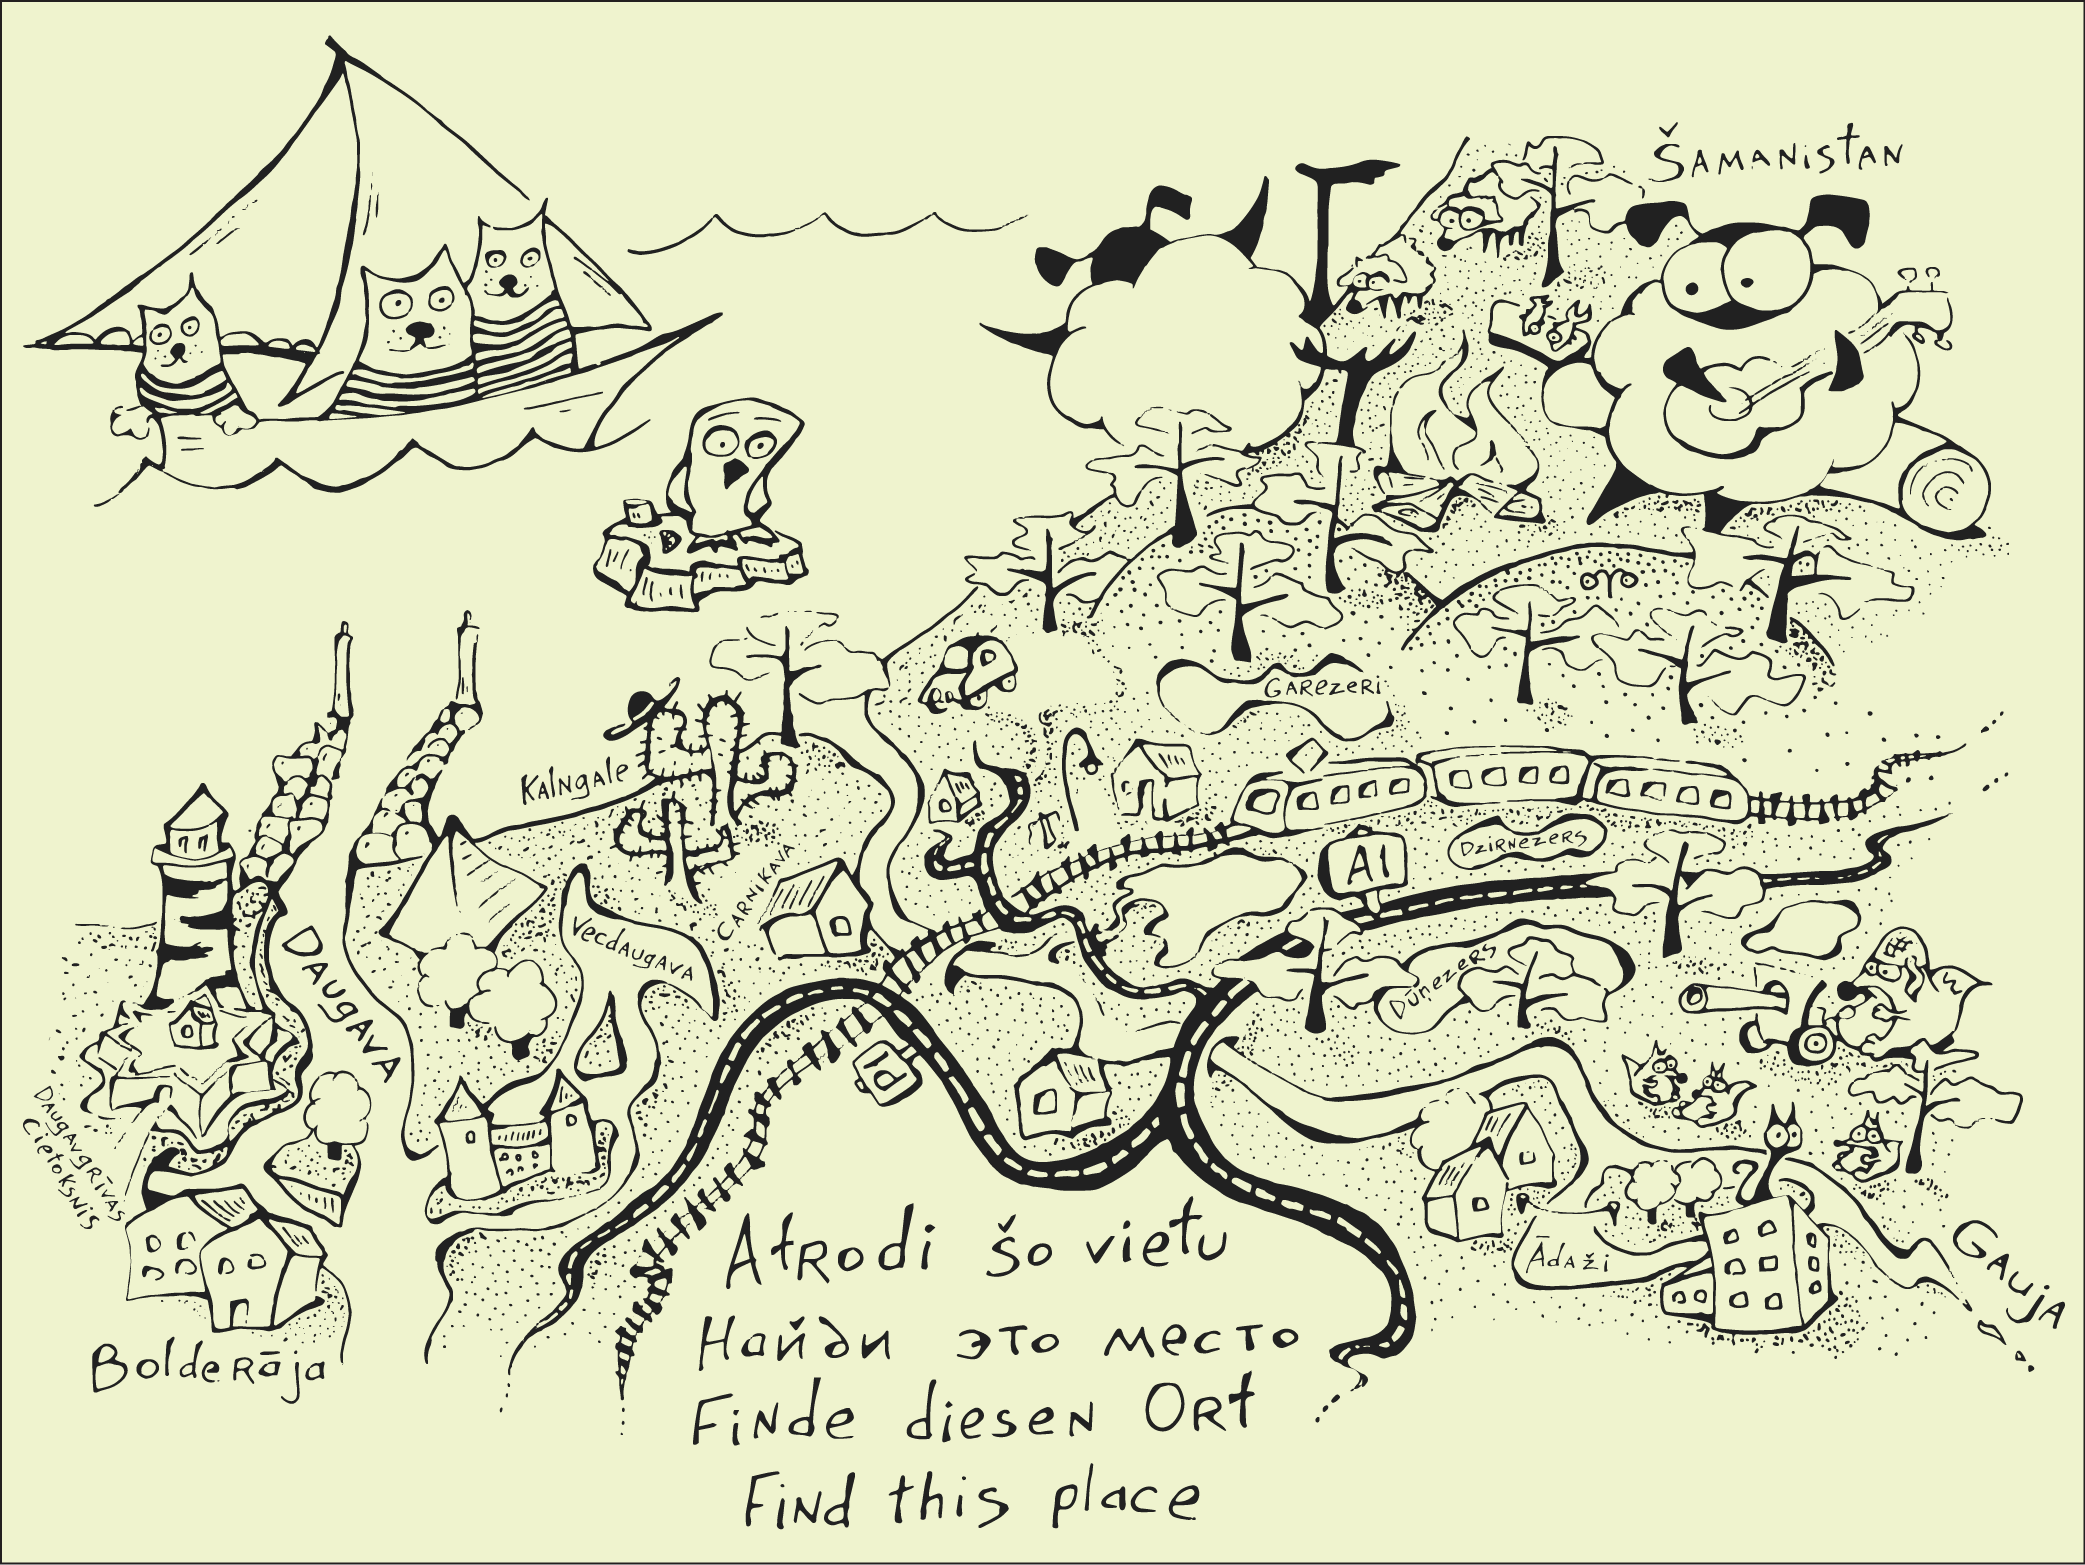 ŠAMANISTAN
GAREZERI
KALNGALE
A1
DZIRNEZERS
CARNIKAVA
VECDAUGAVA
DAUGAVA
DŪNEZERS
P1
DAUGAVGRĪVAS
CIETOKSNIS
ĀDAŽI
GAUJA
Bolderāja
Atrodi šo vietu
Найди это место
Finde diesen Ort
Find this place